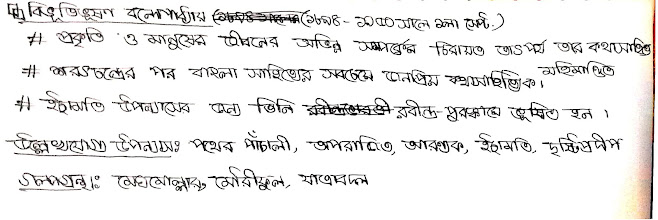 বিভূতিভূষণ বন্দ্যোপাধ্যায় (১৮৯৪ - ১৯৫০ সালে ১লা সেপ্ট.)
# প্রকৃতি ও মানুষের জীবনের অভিন্ন সম্পর্কের চিরায়ত তাৎপর্য তার কথাসাহিত্যে মহিমান্বিত
# শরৎচন্দ্রের পর বাংলা সাহিত্যের সবচেয়ে জনপ্রিয় কথাসাহিত্যিক।
# ইছামতি উপন্যাসের জন্য তিনি রবীন্দ্র পুরস্কারে ভূষিত হন।
উল্লেখযোগ্য উপন্যাসঃ পথের পাঁচালী, অপরাজিত, আরণ্যক, ইছামতি, দৃষ্টিপ্রদীপ
গল্পগ্রন্থঃ মেঘমোল্লার, মৌরিফুল, যাত্রাবদল